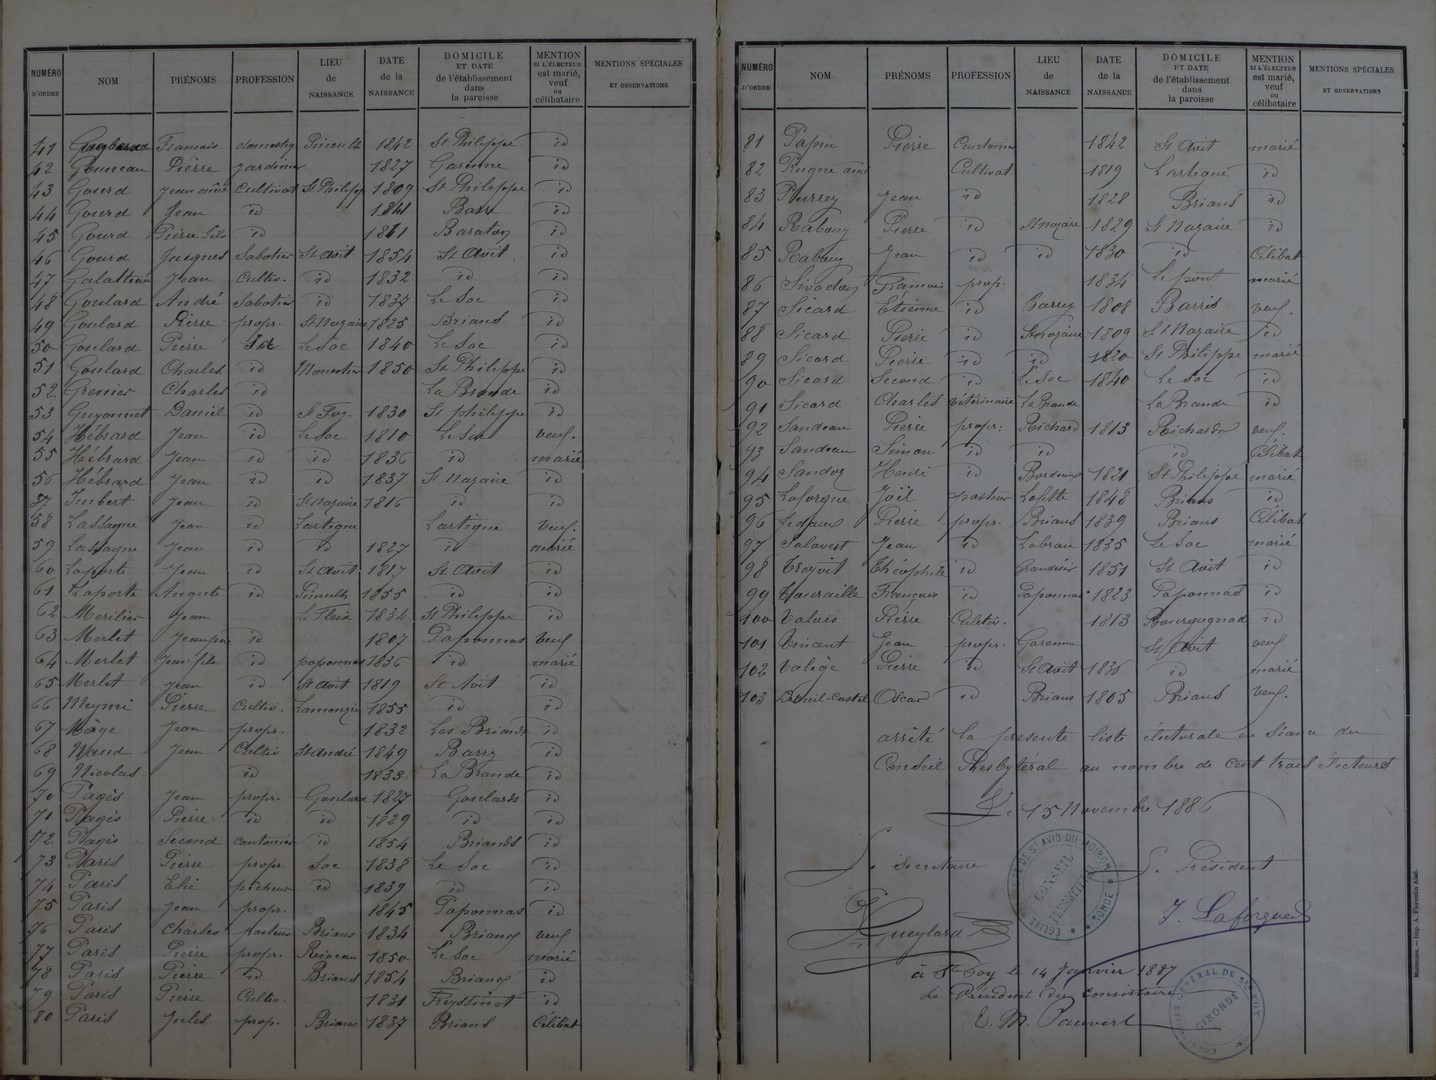 NUMÉRO D'ORDRE NOM PRÉNOMS PROFESSION LIEU de NAISSANCE DATE de la NAISSANCE DOMICILE ET DATE de l'établissement dans la paroisse MENTION SI L'ÉLECTEUR est marié, veuf ou célibataire MENTIONS SPÉCIALES ET OBSERVATIONS
41 1842 St Philippe id
42 Pierre jardinier 1827 Garenne id
43 Gourd Jean aîné Cultivat St Philipp 1809 St Philippe id
44 Gourd Jean id Barre id
45 Gourd Pierre fils id id
46 Gourd Jacques Sabotier St Avit 1854 St Avit id
47 Jean Cultiv. id 1832 id id
48 Goulard André Sabotier id 1837 Le Soc id
49 Goulard Pierre propr. St Nazaire 1825 Briands id
50 Goulard Pierre Le Soc 1840 Le Soc id
51 Goulard Charles id 1850 St Philippe id
52 Grenier Charles id La Brande id
53 Guyonnet Daniel id St Foy 1830 St philippe id
54 Hébrard Jean id Le Soc 1810 Le Soc veuf.
55 Hébrard Jean id id 1836 id marié
56 Hébrard Jean id id 1837 St Nazaire id
57 Imbert Jean id St Nazaire 1816 id id
58 Lassagne Jean id Lartigue Lartigue veuf.
59 Lassagne Jean id id 1827 id marié
60 Laporte Jean id St Avit 1817 St Avit id
61 Laporte Auguste id 1855 id id
62 Merilier Jean Le Fleix 1834 St Philippe id
63 Merlet id 1807 Paponnas veuf
64 Merlet Jean fils id paponnas 1836 id marié
65 Merlet Jean id St Avit 1819 St Avit id
66 Meymi Pierre Cultiv. Lamonzie 1855 id id
67 Mège Jean propr. 1832 Les Briands id
68 Jean Cultiv St André 1849 Barry id
69 Nicolas id 1833 La Brande id
70 Pagès Jean propr. Goulard 1827 Goulards id
71 Pagès Pierre id id 1829 id id
72 Pagès Second cantonier id 1854 Briands id
73 Paris Pierre propr. Soc 1838 Le Soc id
74 Paris Elie pêcheur id 1839 id id
75 Paris Jean propr. 1845 Paponnas id
76 Paris Charles facteur Brians 1834 veuf
77 Paris Pierre propr. 1850 Le Soc marié
78 Paris Pierre id Brians 1854 id
79 Paris Pierre Cultiv. 1831 id
80 Paris Jules prop. Brians 1837 Brians Célibat
NUMÉRO D'ORDRE NOM PRÉNOMS PROFESSION LIEU de NAISSANCE DATE de la NAISSANCE DOMICILE ET DATE de l'établissement dans la paroisse MENTION SI L'ÉLECTEUR est marié, veuf ou célibataire MENTIONS SPÉCIALES ET OBSERVATIONS
81 Papin Pierre Cantonier 1842 St Avit marié
82 Cultivat. 1819 Lartigue id
83 Jean id 1828 Brians id
84 Rabouy Pierre id St nazaire 1829 St Nazaire id
85 Rabouy Jean id id 1830 id Célibat
86 François prop. 1834 Le pont marié
87 Sicard Etienne id Barrey 1808 Barris veuf.
88 Sicard Pierre id St nazaire 1809 St Nazaire id
89 Sicard Pierre id id 1820 St Philippe marié
90 Sicard Second id Le Soc 1840 Le Soc id
91 Sicard Charles vétérinaire La Brande La Brande id
92 Sandeau Pierre propr: Richard 1813 Richards veuf.
93 Sandeau Simon id id id célibat
94 Sandoz Henri id Bordeaux 1821 St Philippe marié
95 Laforgue Joël pasteur Lafitte 1848 Brians id
96 Pierre propr. Brians 1839 Brians Célibat
97 Salavert Jean id 1835 Le Soc marié
98 Théophile id 1851 St Avit id
99 François id Paponnas 1823 Paponnas id
100 Valais Pierre Cultiv. 1813 id
101 Vincent Jean propr. Garenne St Avit veuf
102 Valège Pierre id St Avit 1836 id marié
103 Oscar id Brians 1805 Brians veuf.
arrêté la présente liste électorale en séance du
Conseil Presbytéral au nombre de cent trois électeurs
Le 15 Novembre 1886
Le Secrétaire Le Président
Gueylard J. Laforgue
à Ste Foy le 14 Janvier 1887
Le Président du Consistoire
E. M. Pauvert
CONSEIL PRESBYTÉRAL
GIRONDE
Marennes. — Imp. A. Florentin Aîné.